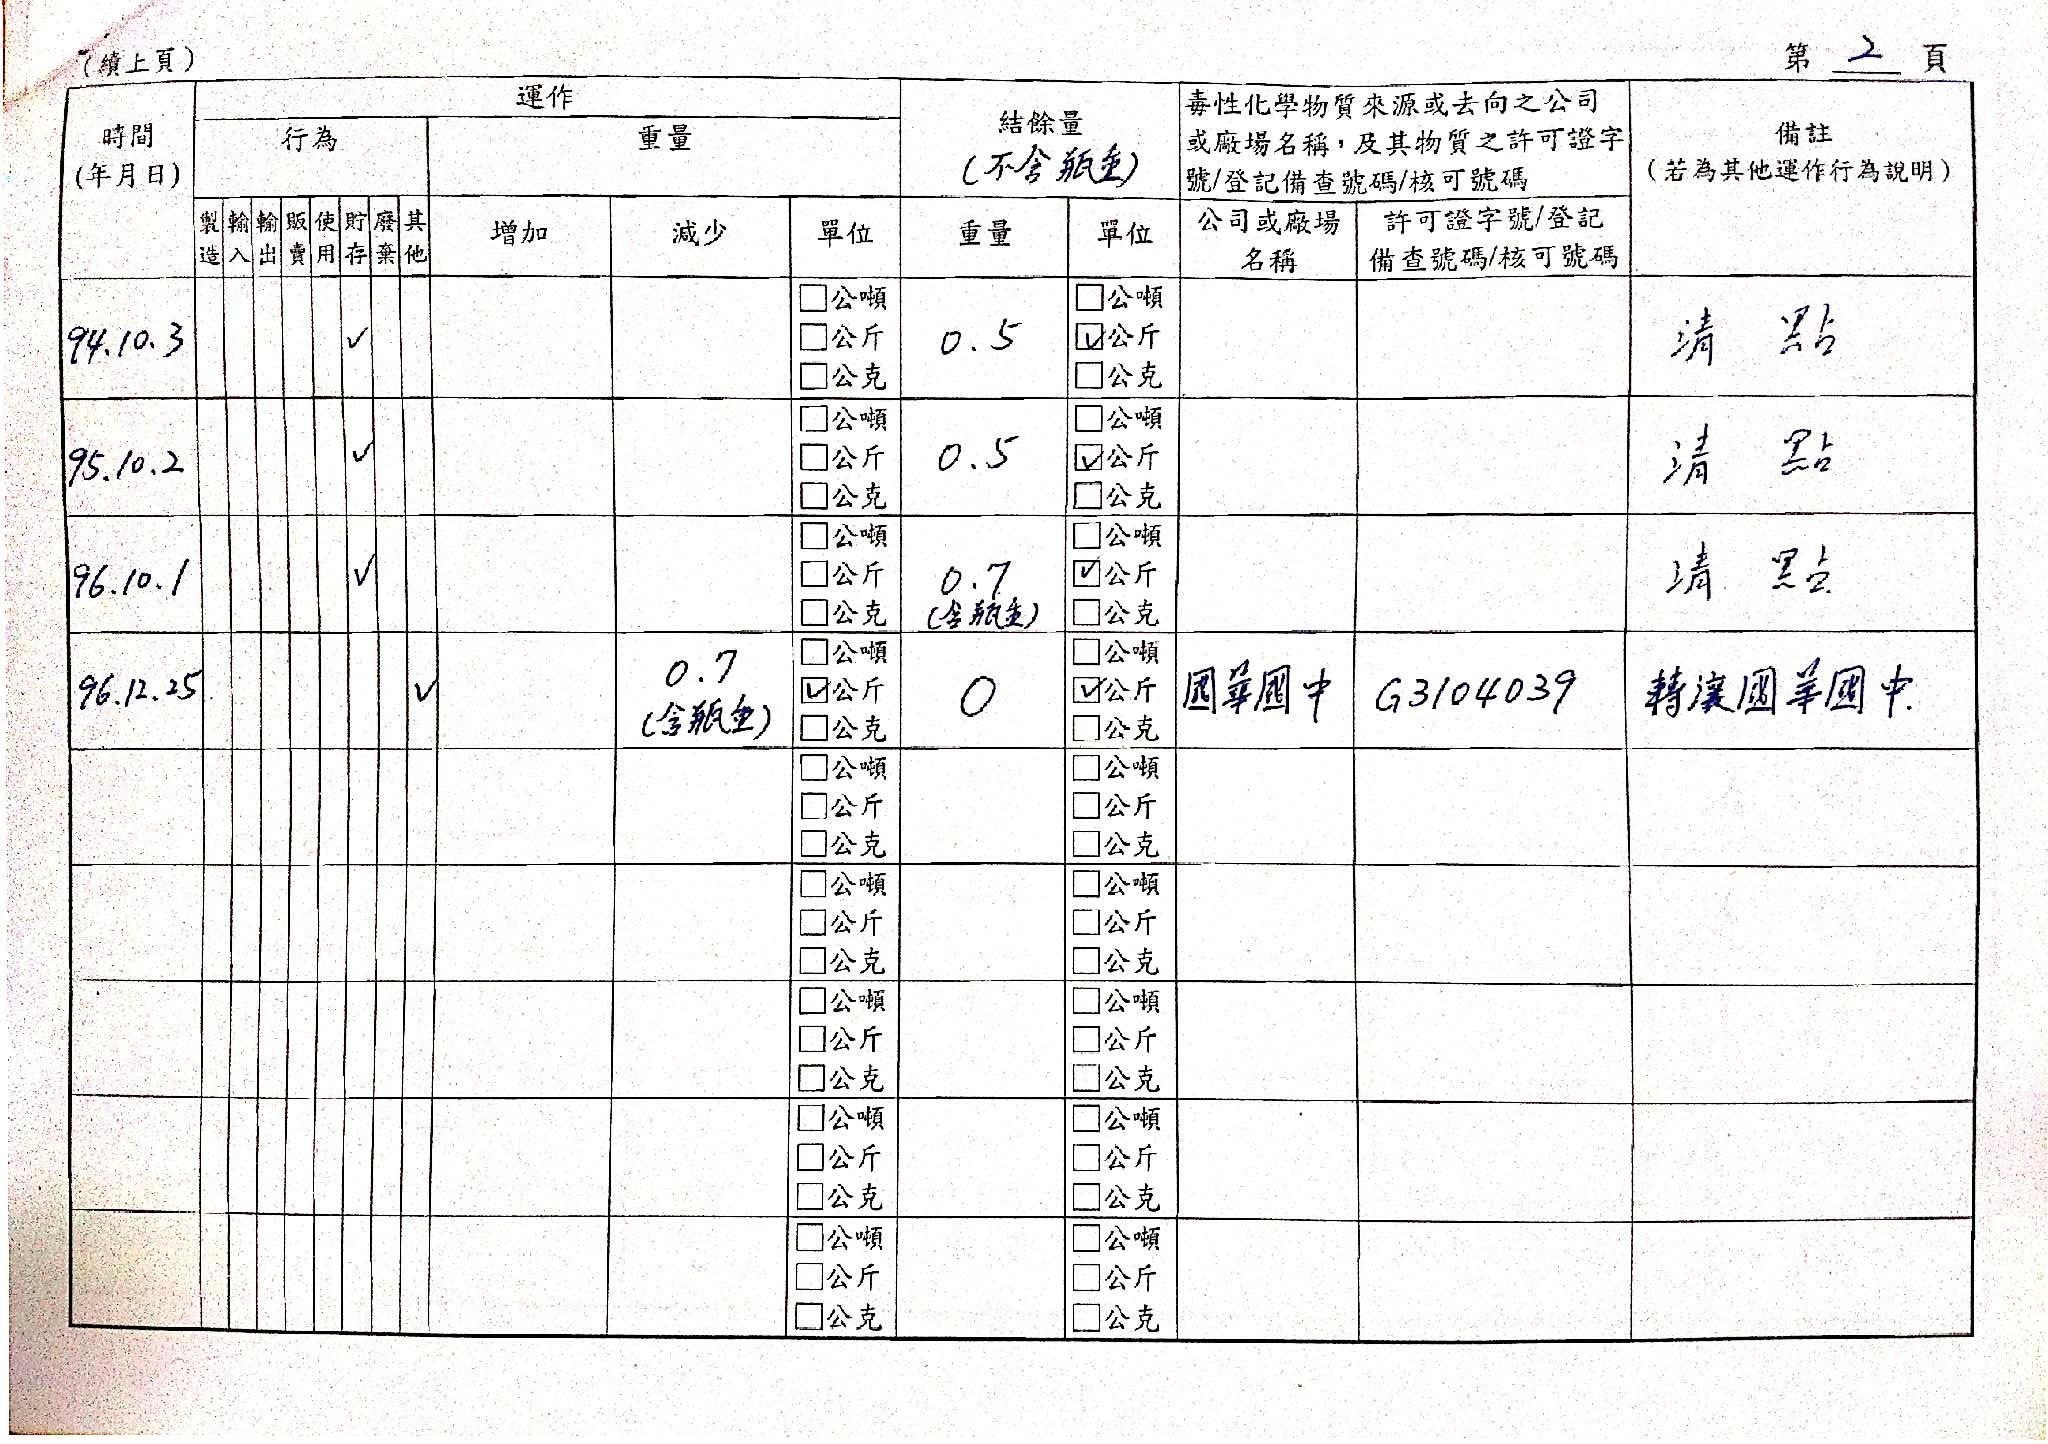 (續上頁)
第 2 頁
時間
(年月日)
運作
行為
重量
結餘量
(不含瓶重)
毒性化學物質來源或去向之公司
或廠場名稱，及其物質之許可證字
號/登記備查號碼/核可號碼
備註
(若為其他運作行為說明)
製造 輸入 輸出 販賣 使用 貯存 廢棄 其他 增加 減少 單位 重量 單位
公司或廠場
名稱
許可證字號/登記
備查號碼/核可號碼
□公噸 □公噸
94.10.3 ✓ □公斤 0.5 ☑公斤 清 點
□公克 □公克
□公噸 □公噸
95.10.2 ✓ □公斤 0.5 ☑公斤 清 點
□公克 □公克
□公噸 □公噸
96.10.1 ✓ □公斤 0.7 ☑公斤 清 點
□公克 (含瓶重) □公克
0.7 □公噸 □公噸
96.12.25 ✓ ☑公斤 0 ☑公斤 國華國中 G3104039 轉讓國華國中.
(含瓶重) □公克 □公克
□公噸 □公噸
□公斤 □公斤
□公克 □公克
□公噸 □公噸
□公斤 □公斤
□公克 □公克
□公噸 □公噸
□公斤 □公斤
□公克 □公克
□公噸 □公噸
□公斤 □公斤
□公克 □公克
□公噸 □公噸
□公斤 □公斤
□公克 □公克